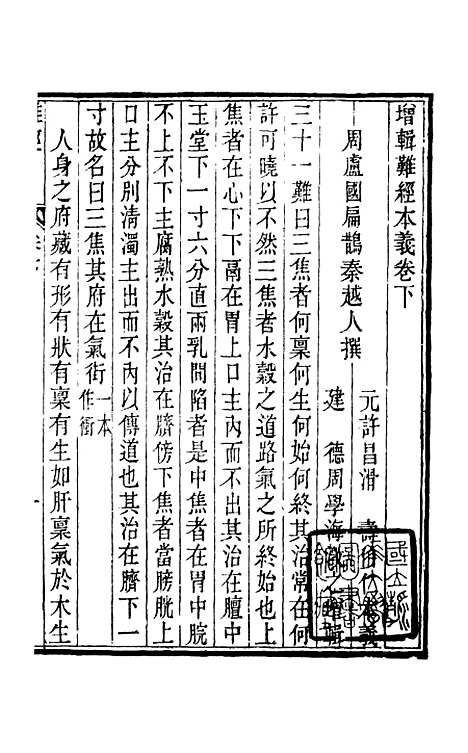 增輯難經本義卷下
周盧國扁鵲秦越人撰
元許昌滑 壽伯仁本義
建 德周學海澂之增輯
三十一難曰三焦者何稟何生何始何終其治常在何
許可曉以不然三焦者水穀之道路氣之所終始也上
焦者在心下下鬲在胃上口主內而不出其治在膻中
玉堂下一寸六分直兩乳間陷者是中焦者在胃中脘
不上不下主腐熟水穀其治在臍傍下焦者當膀胱上
口主分別清濁主出而不內以傳道也其治在臍下一
寸故名曰三焦其府在氣街一本作衝
人身之府藏有形有狀有稟有生如肝稟氣於木生
難經